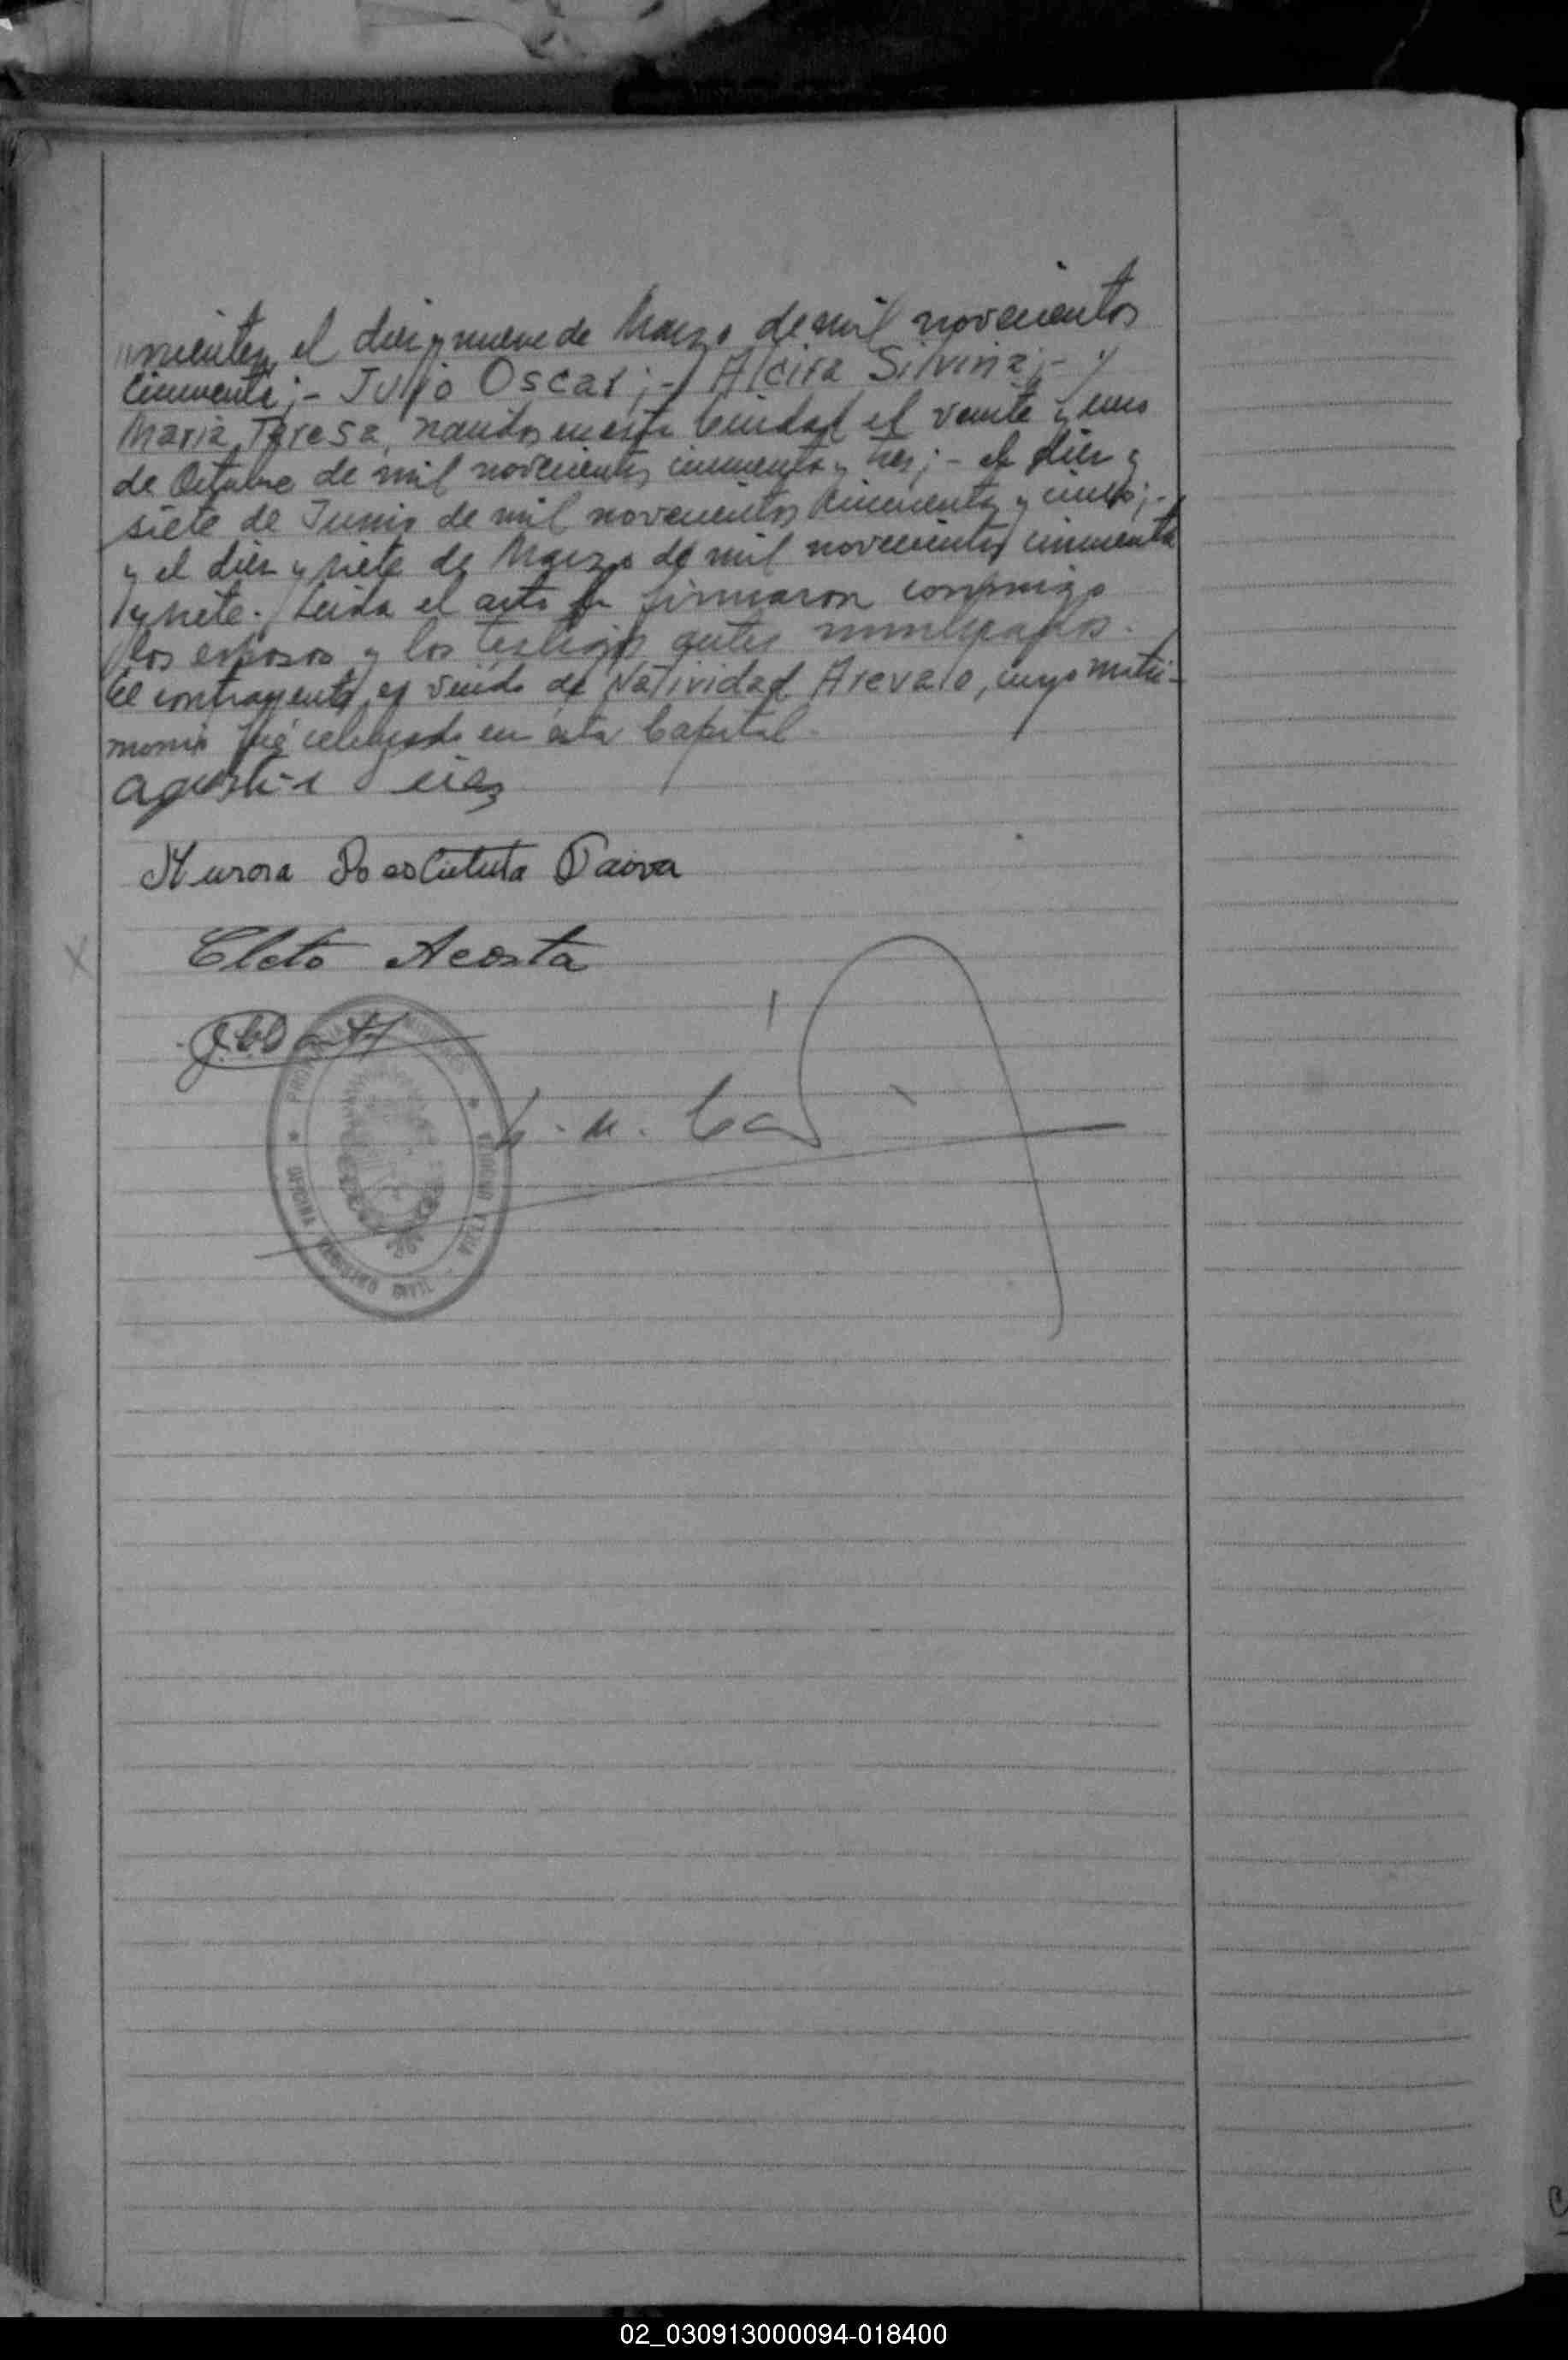 mientes, el diez y nueve de Marzo de mil novecientos
cincuenta;- Julio Oscar;- Alcira Silvina;- y
Maria Teresa, nacidos en esta Ciudad el veinte y uno
de Octubre de mil novecientos cincuenta y tres;- el diez y
siete de Junio de mil novecientos cincuenta y cinco;-
y el diez y siete de Marzo de mil novecientos cincuenta
y siete.- Leida el acta la firmaron conmigo
los esposos y los testigos antes nombrados.-
El contrayente es viudo de Natividad Arevalo, cuyo matri-
monio fué celebrado en esta Capital.-
Agustin
Aurora Restituta Paiva
Cleto Acosta
OFICINA REGISTRO CIVIL
02_030913000094-018400